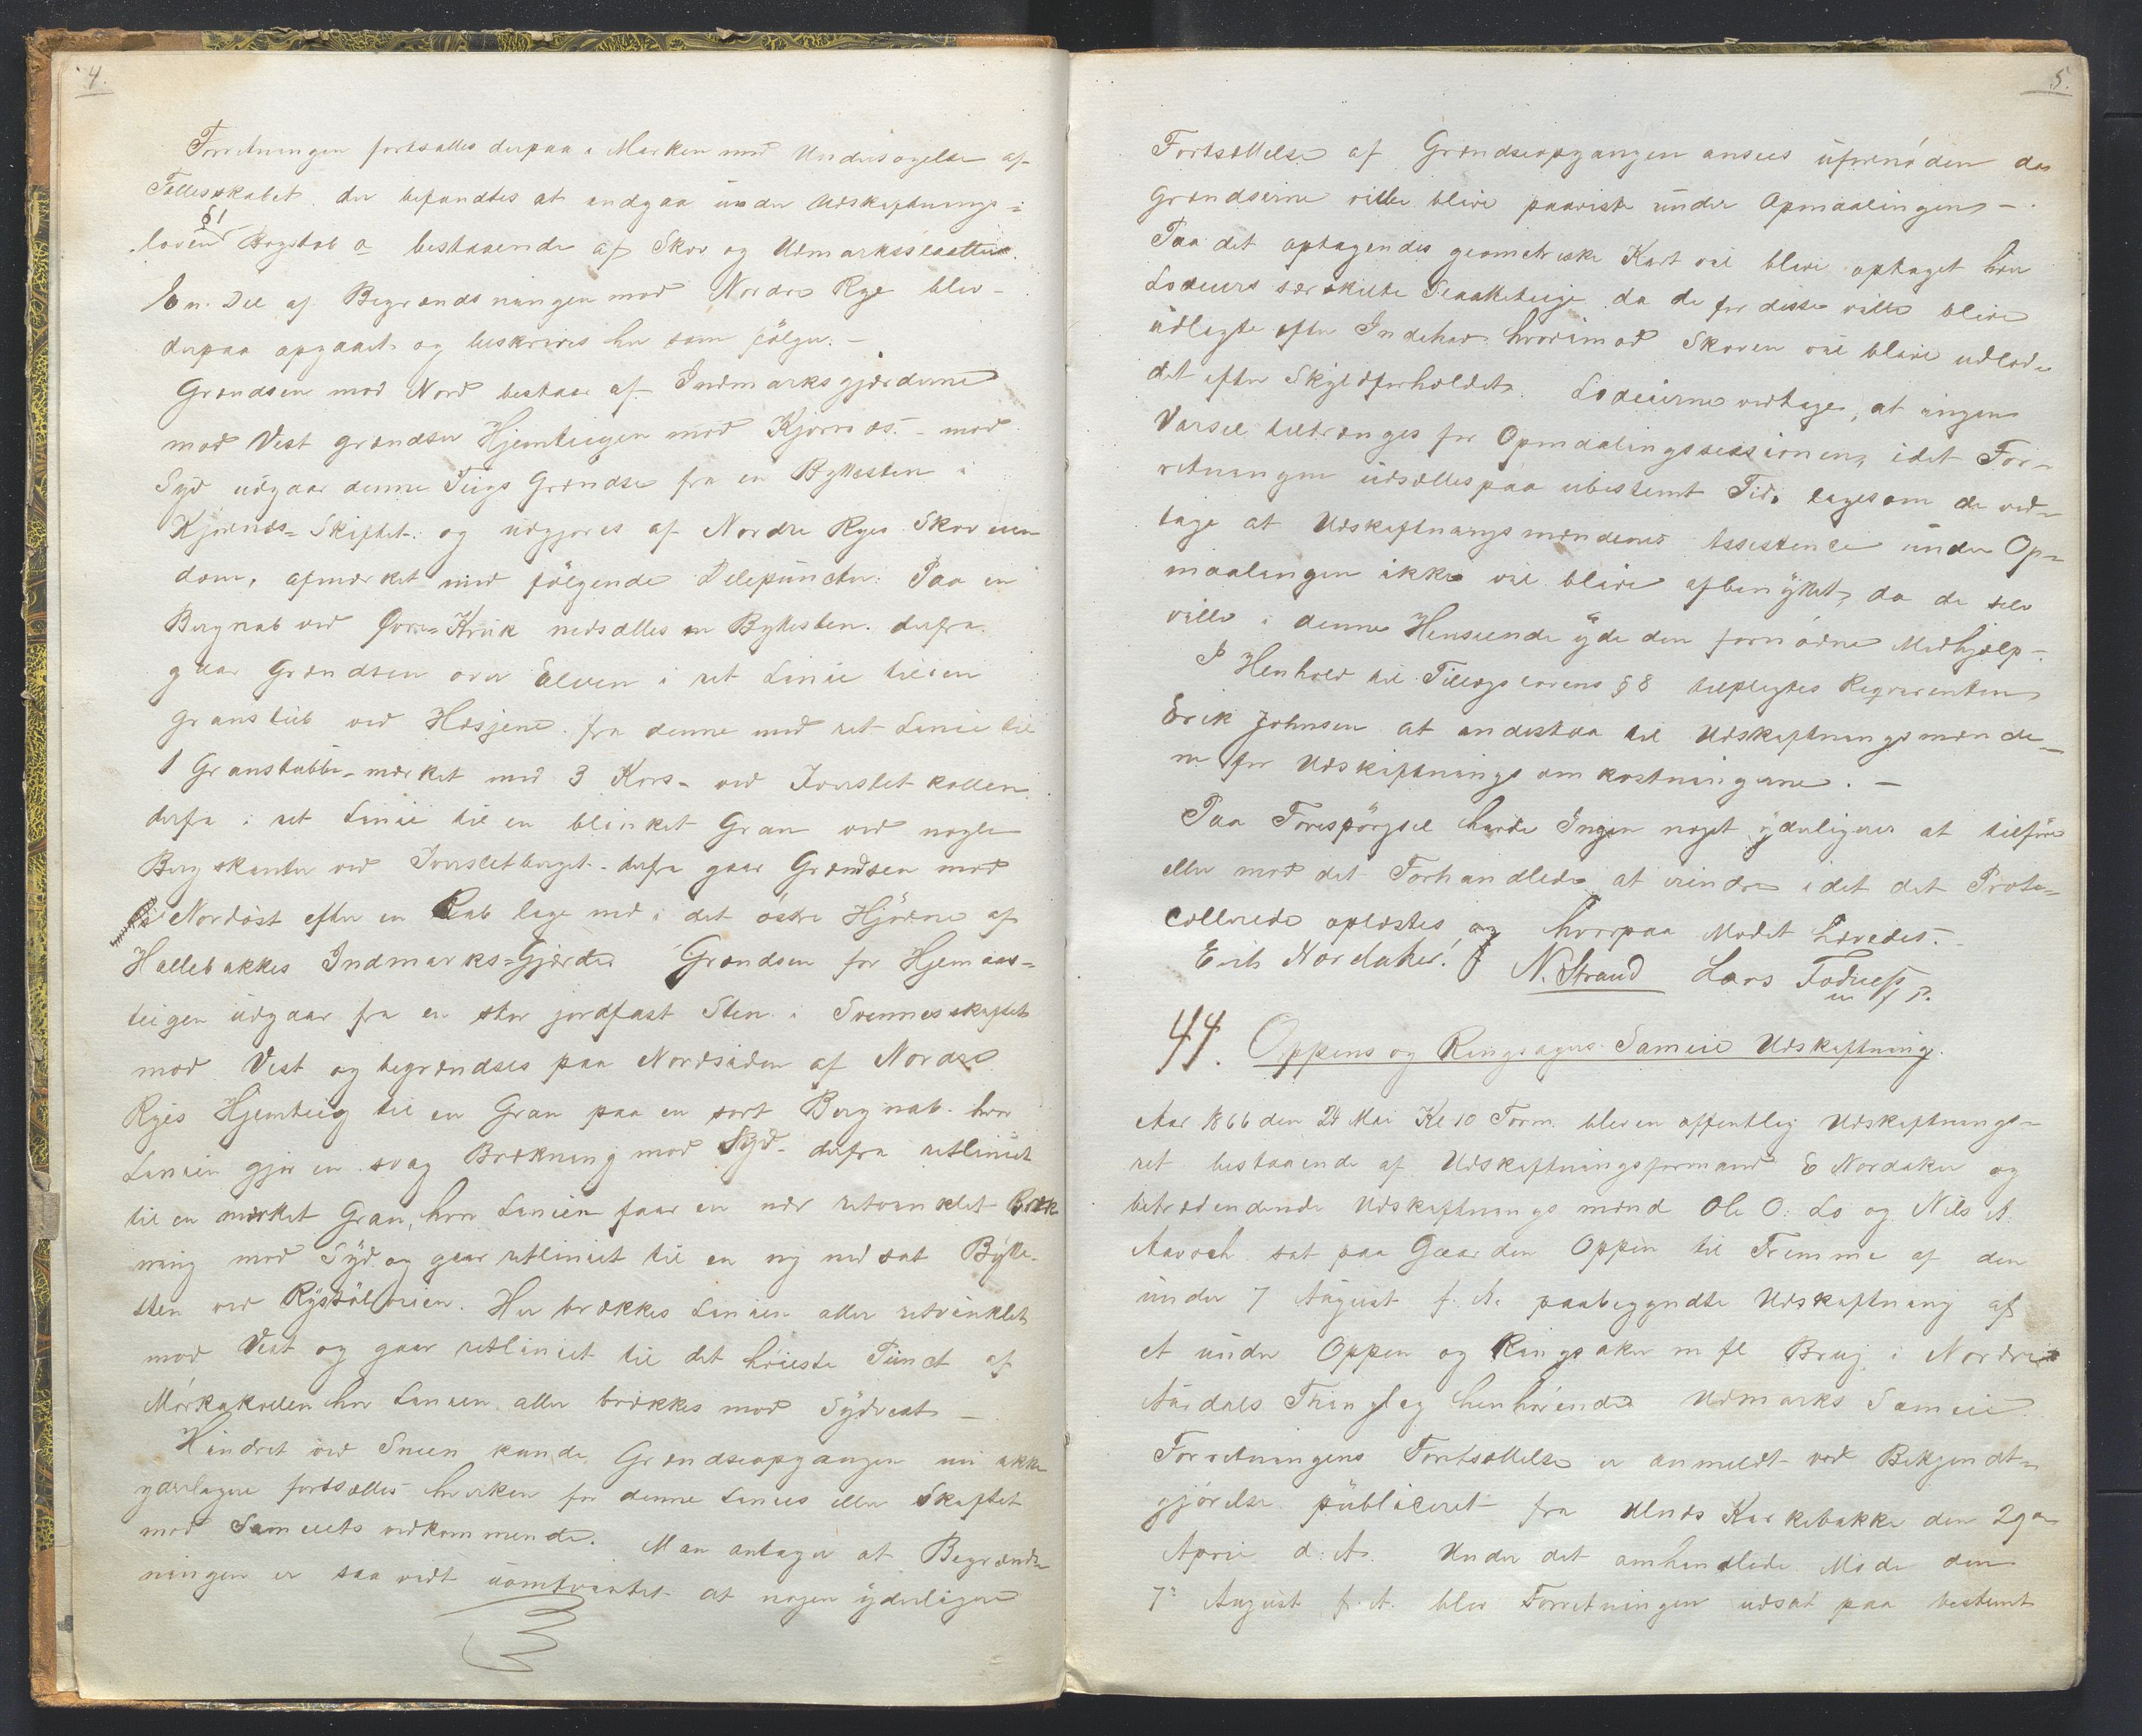 4.
Forretningen fortsattes derpaa i Marken med Undersøgelse af
Fællesskabet, der befandtes at indgaa under Udskiftnings=
lovens §1 Bogstab a bestaaende af Skov og Udmarksslaatter.
En Del af Begrændsningen mod Nordre Rye blev
derpaa opgaaet og beskrives her som følger:-
Grændsen mod Nord bestaar af Indmarksgjærderne
mod Vest grændser Hjemteigen mod Kjørnæs - mod
Syd udgaar denne Teigs Grændse fra en Byttesten i
Kjørnæs-Skiftet: og udgjøres af Nordre Ryes Skoveien
dom, afmærket med følgende Delepuncter: Paa en
Bergnab ved Qvern-Kruk nedsattes en Byttesten. derfra
gaar Grændsen over Elven i ret Linie til en
Granstub ved Hæsjene. fra denne med ret Linie til
1 Granstubbe-mærket med 3 Kors- ved Iverslet kollen,
derfra i ret Linie til en blinket Gran ved nogle
Bergskanter ved Iversletberget - derfra gaar Grændsen mod
Nordøst efter en Rab lige ned i det østre Hjørne af
Hallebakkes Indmarks=Gjærde. Grændsen for Hjemaas=
teigen udgaar fra en stor jordfast Sten i Svennesskiftet
mod Vest og begrændses paa Nordsiden af Nordre
Ryes Hjemteig til en Gran paa en sort Bergnab. hvor
Linien gjør en svag Brækning mod Syd - derfra retliniet
til en mærket Gran, hvor Linien faar en nær retvinklet Bræk
ning mod Syd og gaar retliniet til en ny nedsat Bytte-
sten ved Ryssølveien. Her brækkes Linien atter retvinklet
mod Vest og gaar retliniet til det høieste Punct af
Mørkakollen hvor Linien atter brækkes mod Sydvest -
Hindret ved Sneen kunde Grændseopgangen nu ikke
yderligere fortsættes hverken for denne Linies eller Skiftet
mod Sameiets vedkommende. Man antager at Begrænds
ningen er saavidt uomtvistet at nogen yderligere
5.
Fortsættelse af Grændseopgangen ansees ufornøden da
Grændserne ville blive paaviste under Opmaalingen -
Paa det optagendes geometriske Kart vil blive optaget hver
Lodeiers særskilte Slaatteteige da de for disse ville blive
udlagte efter Indehav hvorimod Skoven vil blive udlod-
det efter Skyldforholdet. Lodeierne vedtage, at ingen
Varsel tiltrænges for Opmaalingssessionen, idet For-
retningen udsættes paa ubestemt Tid, ligesom de ved-
tage at Udskiftningsmændenes Assistence under Op=
maalingen ikke vil blive afbenyttet, da de selv
ville i denne Henseende yde den fornødne Medhjælp -
I Henhold til Tillægslovens § 8 tilpligtes Reqvirenten
Erik Johnsen at indestaa til Udskiftningsmænde-
ne for Udskiftningsomkostningerne. -
Paa Forespørgsel havde Ingen noget yderligere at tilføre
eller mod det Forhandlede at erindre idet det Proto=
collerede oplæstes og hvorpaa Mødet hævedes. -
Erik Nordaker. N. Strand Lars Fodnæss
m. f. P.
44. Oppens og Ringsagers Sameie Udskiftning.
Aar 1866 den 24 Mai Kl 10 Form. blev en offentlig Udskiftnings-
ret bestaaende af Udskiftningsformand E Nordaker og
betrædendende Udskiftningsmænd Ole O: Lo og Nils A.
sat paa Gaarden Oppen til Fremme af den
under 7 August f. A. paabegyndte Udskiftning af
et under Oppen og Ringsaker m fl Brug i Nordre
Aurdals Thinglag henhørende Udmarks Sameie
Forretningens Fortsættelse er anmeldt ved Bekjendt=
gjørelse publiceret fra Ulnæs Kirkebakke den 29de
April d: A. Under det omhandlede Møde den
7de August f. A. blev Forretningen udsat paa bestemt